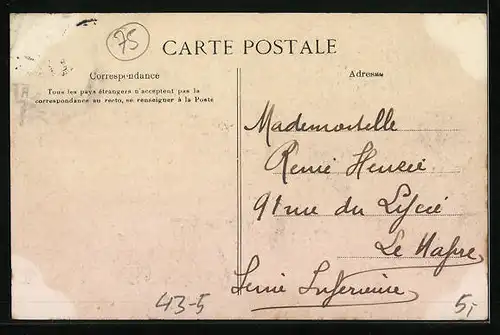 75
CARTE POSTALE
Correspondance
Tous les pays étrangers n'acceptent pas la
correspondance au recto, se renseigner à la Poste
Adresse
Mademoiselle
91 rue du Lycée
Le Havre
Seine Inférieure
43-5
5,-